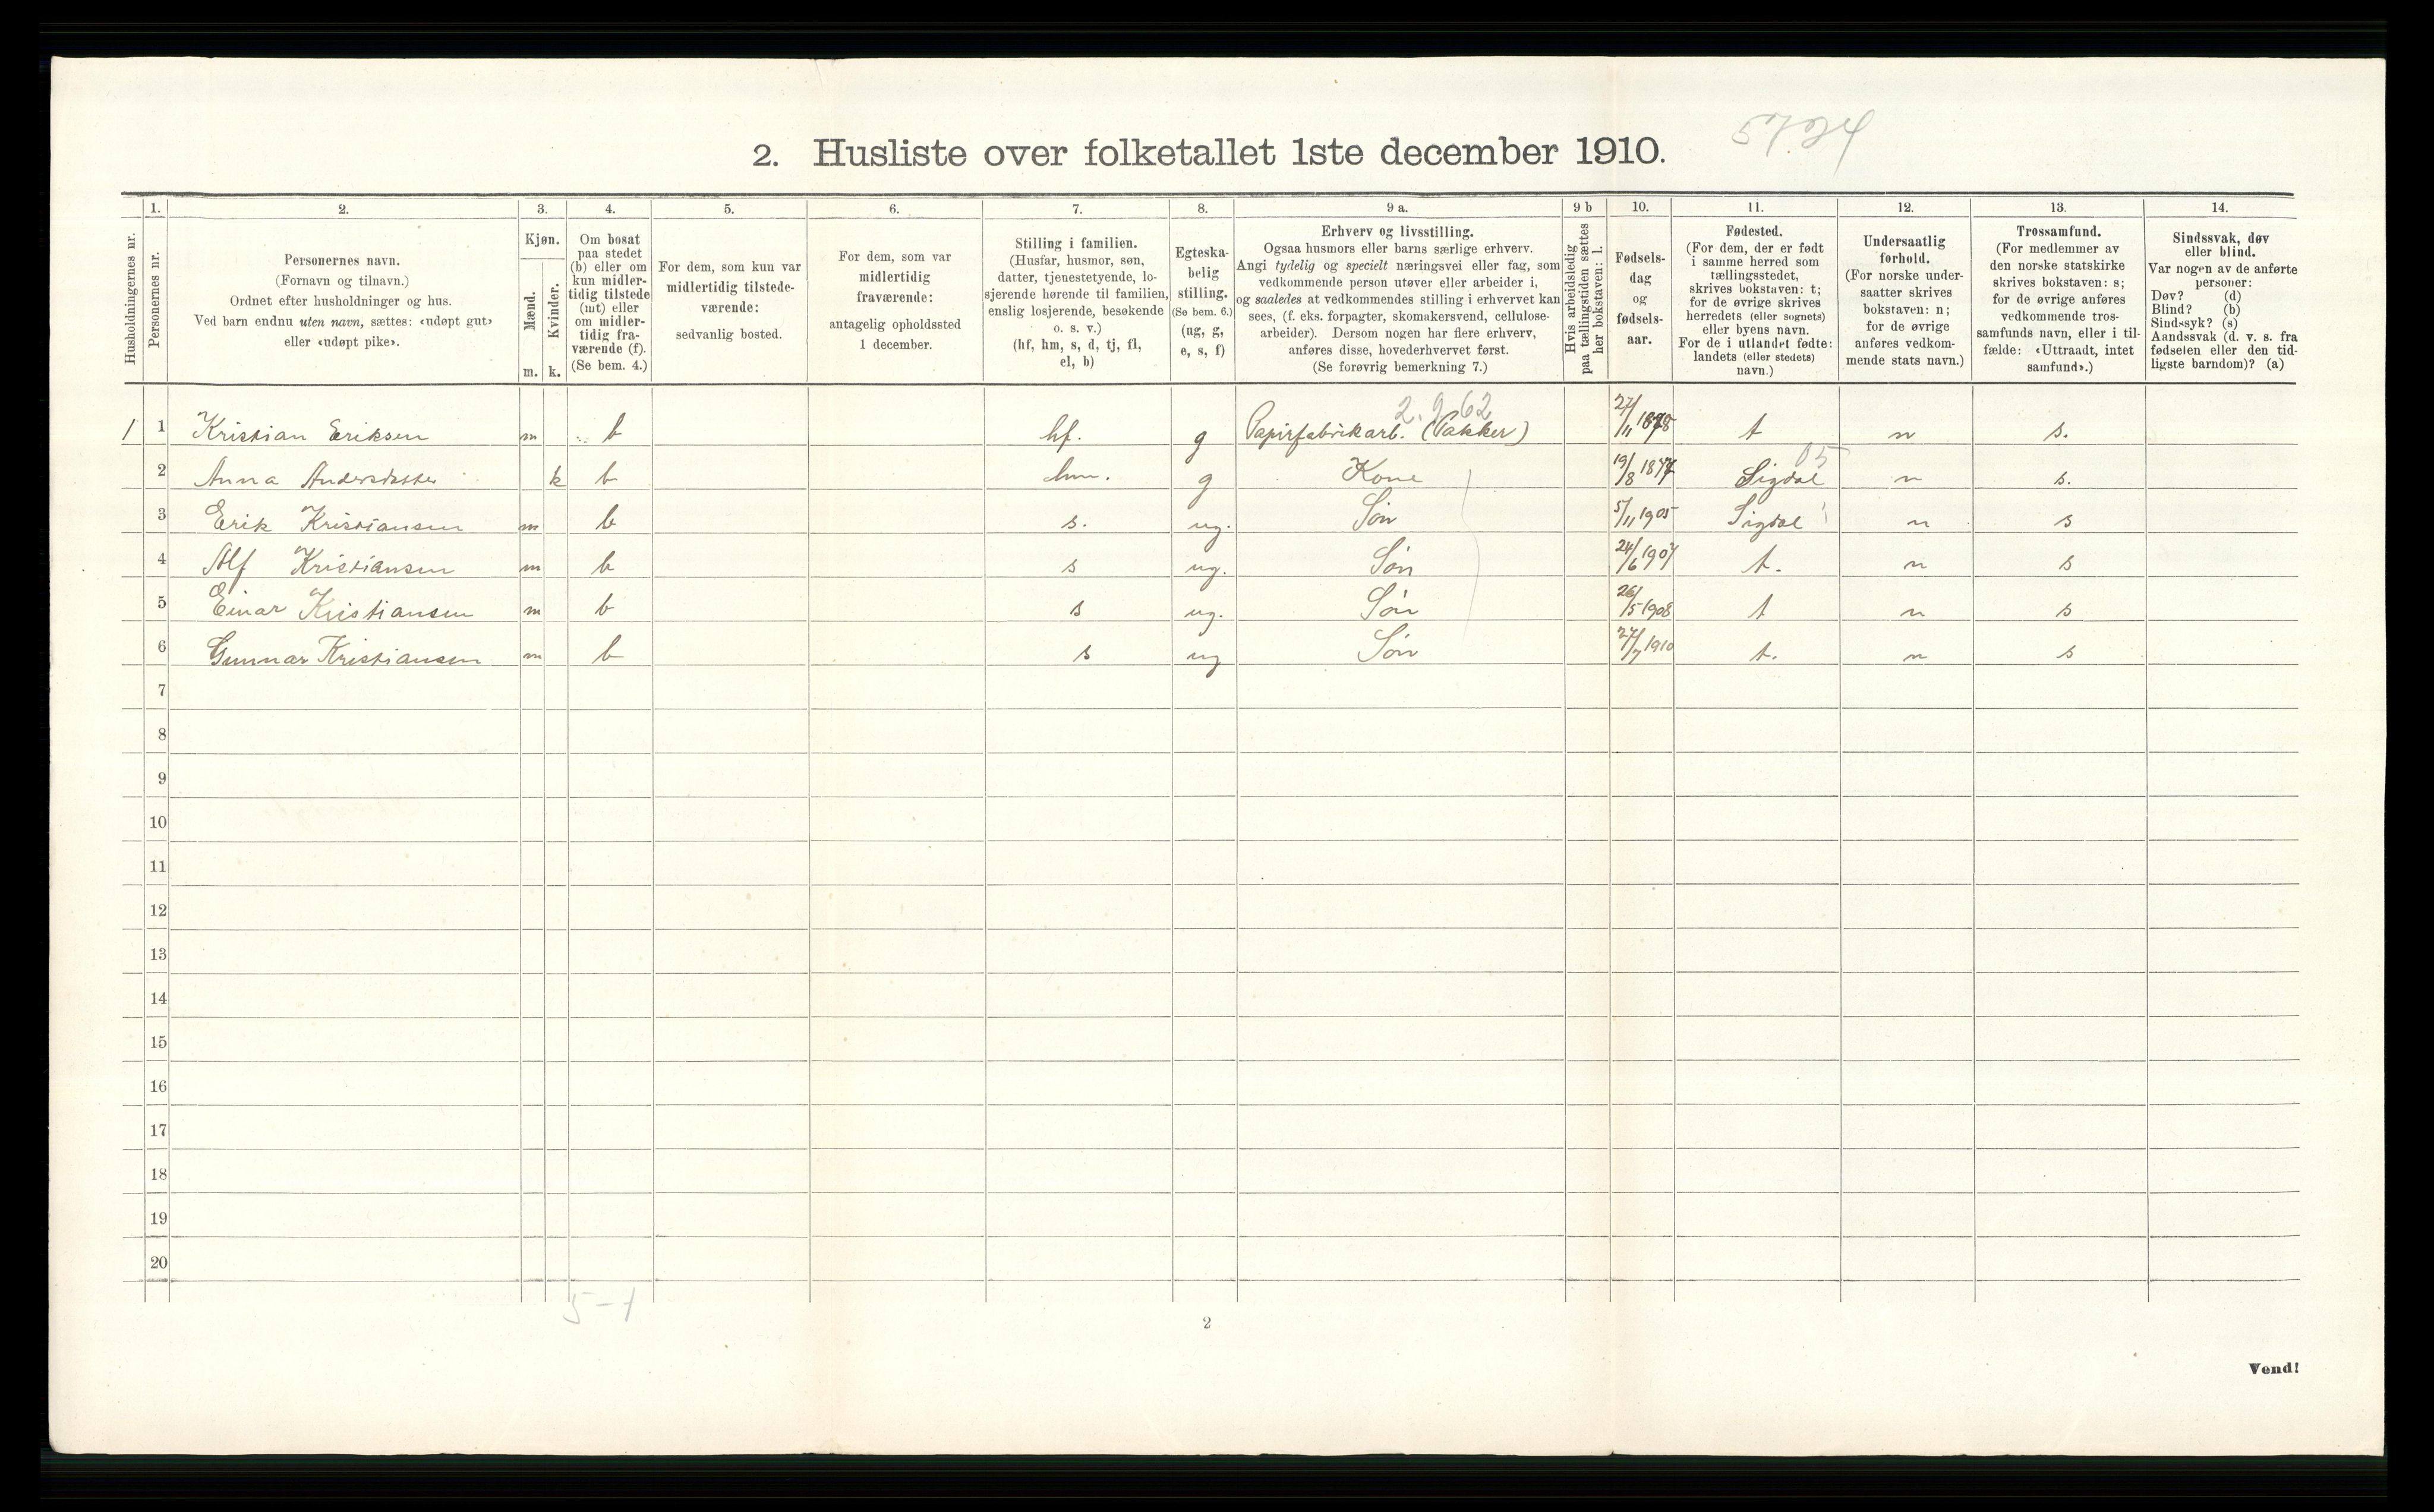 57.24
2. Husliste over folketallet 1ste december 1910.
Husholdningernes nr.
1.
Personernes nr.
2.
Personernes navn.
(Fornavn og tilnavn.)
Ordnet efter husholdninger og hus.
Ved barn endnu uten navn, sættes: «udøpt gut»
eller «udøpt pike».
3.
Kjøn.
Mænd.
Kvinder.
m. k.
4.
Om bosat
paa stedet
(b) eller om
kun midler-
tidig tilstede
(mt) eller
om midler-
tidig fra-
værende (f).
(Se bem. 4.)
5.
For dem, som kun var
midlertidig tilstede-
værende:
sedvanlig bosted.
6.
For dem, som var
midlertidig
fraværende:
antagelig opholdssted
1 december.
7.
Stilling i familien.
(Husfar, husmor, søn,
datter, tjenestetyende, lo-
sjerende hørende til familien,
enslig losjerende, besøkende
o. s. v.)
(hf, hm, s, d, tj, fl,
el, b)
8.
Egteska-
belig
stilling.
(Se bem. 6.)
(ug, g,
e, s, f)
9 a.
Erhverv og livsstilling.
Ogsaa husmors eller barns særlige erhverv.
Angi tydelig og specielt næringsvei eller fag, som
vedkommende person utøver eller arbeider i,
og saaledes at vedkommendes stilling i erhvervet kan
sees, (f. eks. forpagter, skomakersvend, cellulose-
arbeider). Dersom nogen har flere erhverv,
anføres disse, hovederhvervet først.
(Se forøvrig bemerkning 7.)
9 b
Hvis arbeidsledig
paa tællingstiden sættes
her bokstaven: l.
10.
Fødsels-
dag
og
fødsels-
aar.
11.
Fødested.
(For dem, der er født
i samme herred som
tællingsstedet,
skrives bokstaven: t;
for de øvrige skrives
herredets (eller sognets)
eller byens navn.
For de i utlandet fødte:
landets (eller stedets)
navn.)
12.
Undersaatlig
forhold.
(For norske under-
saatter skrives
bokstaven: n;
for de øvrige
anføres vedkom-
mende stats navn.)
13.
Trossamfund.
(For medlemmer av
den norske statskirke
skrives bokstaven: s;
for de øvrige anføres
vedkommende tros-
samfunds navn, eller i til-
fælde: «Uttraadt, intet
samfund».)
14.
Sindssvak, døv
eller blind.
Var nogen av de anførte
personer:
Døv? (d)
Blind? (b)
Sindssyk? (s)
Aandssvak (d. v. s. fra
fødselen eller den tid-
ligste barndom)? (a)
1 1 Kristian Eriksen m b hf. g Papirfabrikarb. (Pakker) 27/11 t n s.
2 Anna k b hm. g Kone 19/8 Sigdal 05 n s.
3 Erik Kristiansen m b s. ug. Søn 5/11 1905 Sigdal n s
4 Alf Kristiansen m b s ug. Søn 24/6 1907 t. n s
5 Einar Kristiansen m b s ug. Søn 26/5 1908 t n s
6 Gunnar Kristiansen m b s ug Søn 27/7 1910 t. n s
7
8
9
10
11
12
13
14
15
16
17
18
19
20
5-1
2
Vend!